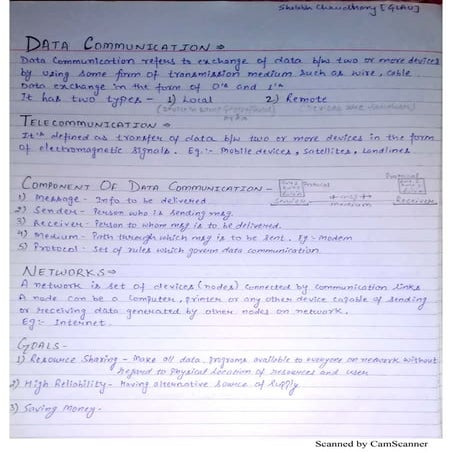 Shelabh Chaudhary [GLAU]
DATA COMMUNICATION ⇒
Data Communication refers to exchange of data b/w two or more devices
by using some form of transmission medium such as wire, cable.
Data exchange in the form of 0's and 1's
It has two types - 1) Local 2) Remote
TELECOMMUNICATION ⇒
It's defined as transfer of data b/w two or more devices in the form
of electromagnetic signals. Eg:- Mobile devices, Satellites, Landlines
COMPONENT OF DATA COMMUNICATION -
Protocol Protocol
1) Message - Info to be delivered
Sender ←msg→ medium Receiver
2) Sender - Person who is sending msg.
3) Receiver - Person to whom msg is to be delivered.
4) Medium - Path through which msg is to be sent. Eg - modem
5) Protocol - Set of rules which govern data communication
NETWORKS ⇒
A network is set of devices (nodes) connected by communication links
A node can be a computer, printer or any other device capable of sending
or receiving data generated by other nodes on network.
Eg:- Internet.
GOALS -
1) Resource Sharing - Make all data, programs available to everyone on network without
regard to physical location of resources and user
2) High Reliability - Having alternative source of supply
3) Saving Money -
Scanned by CamScanner